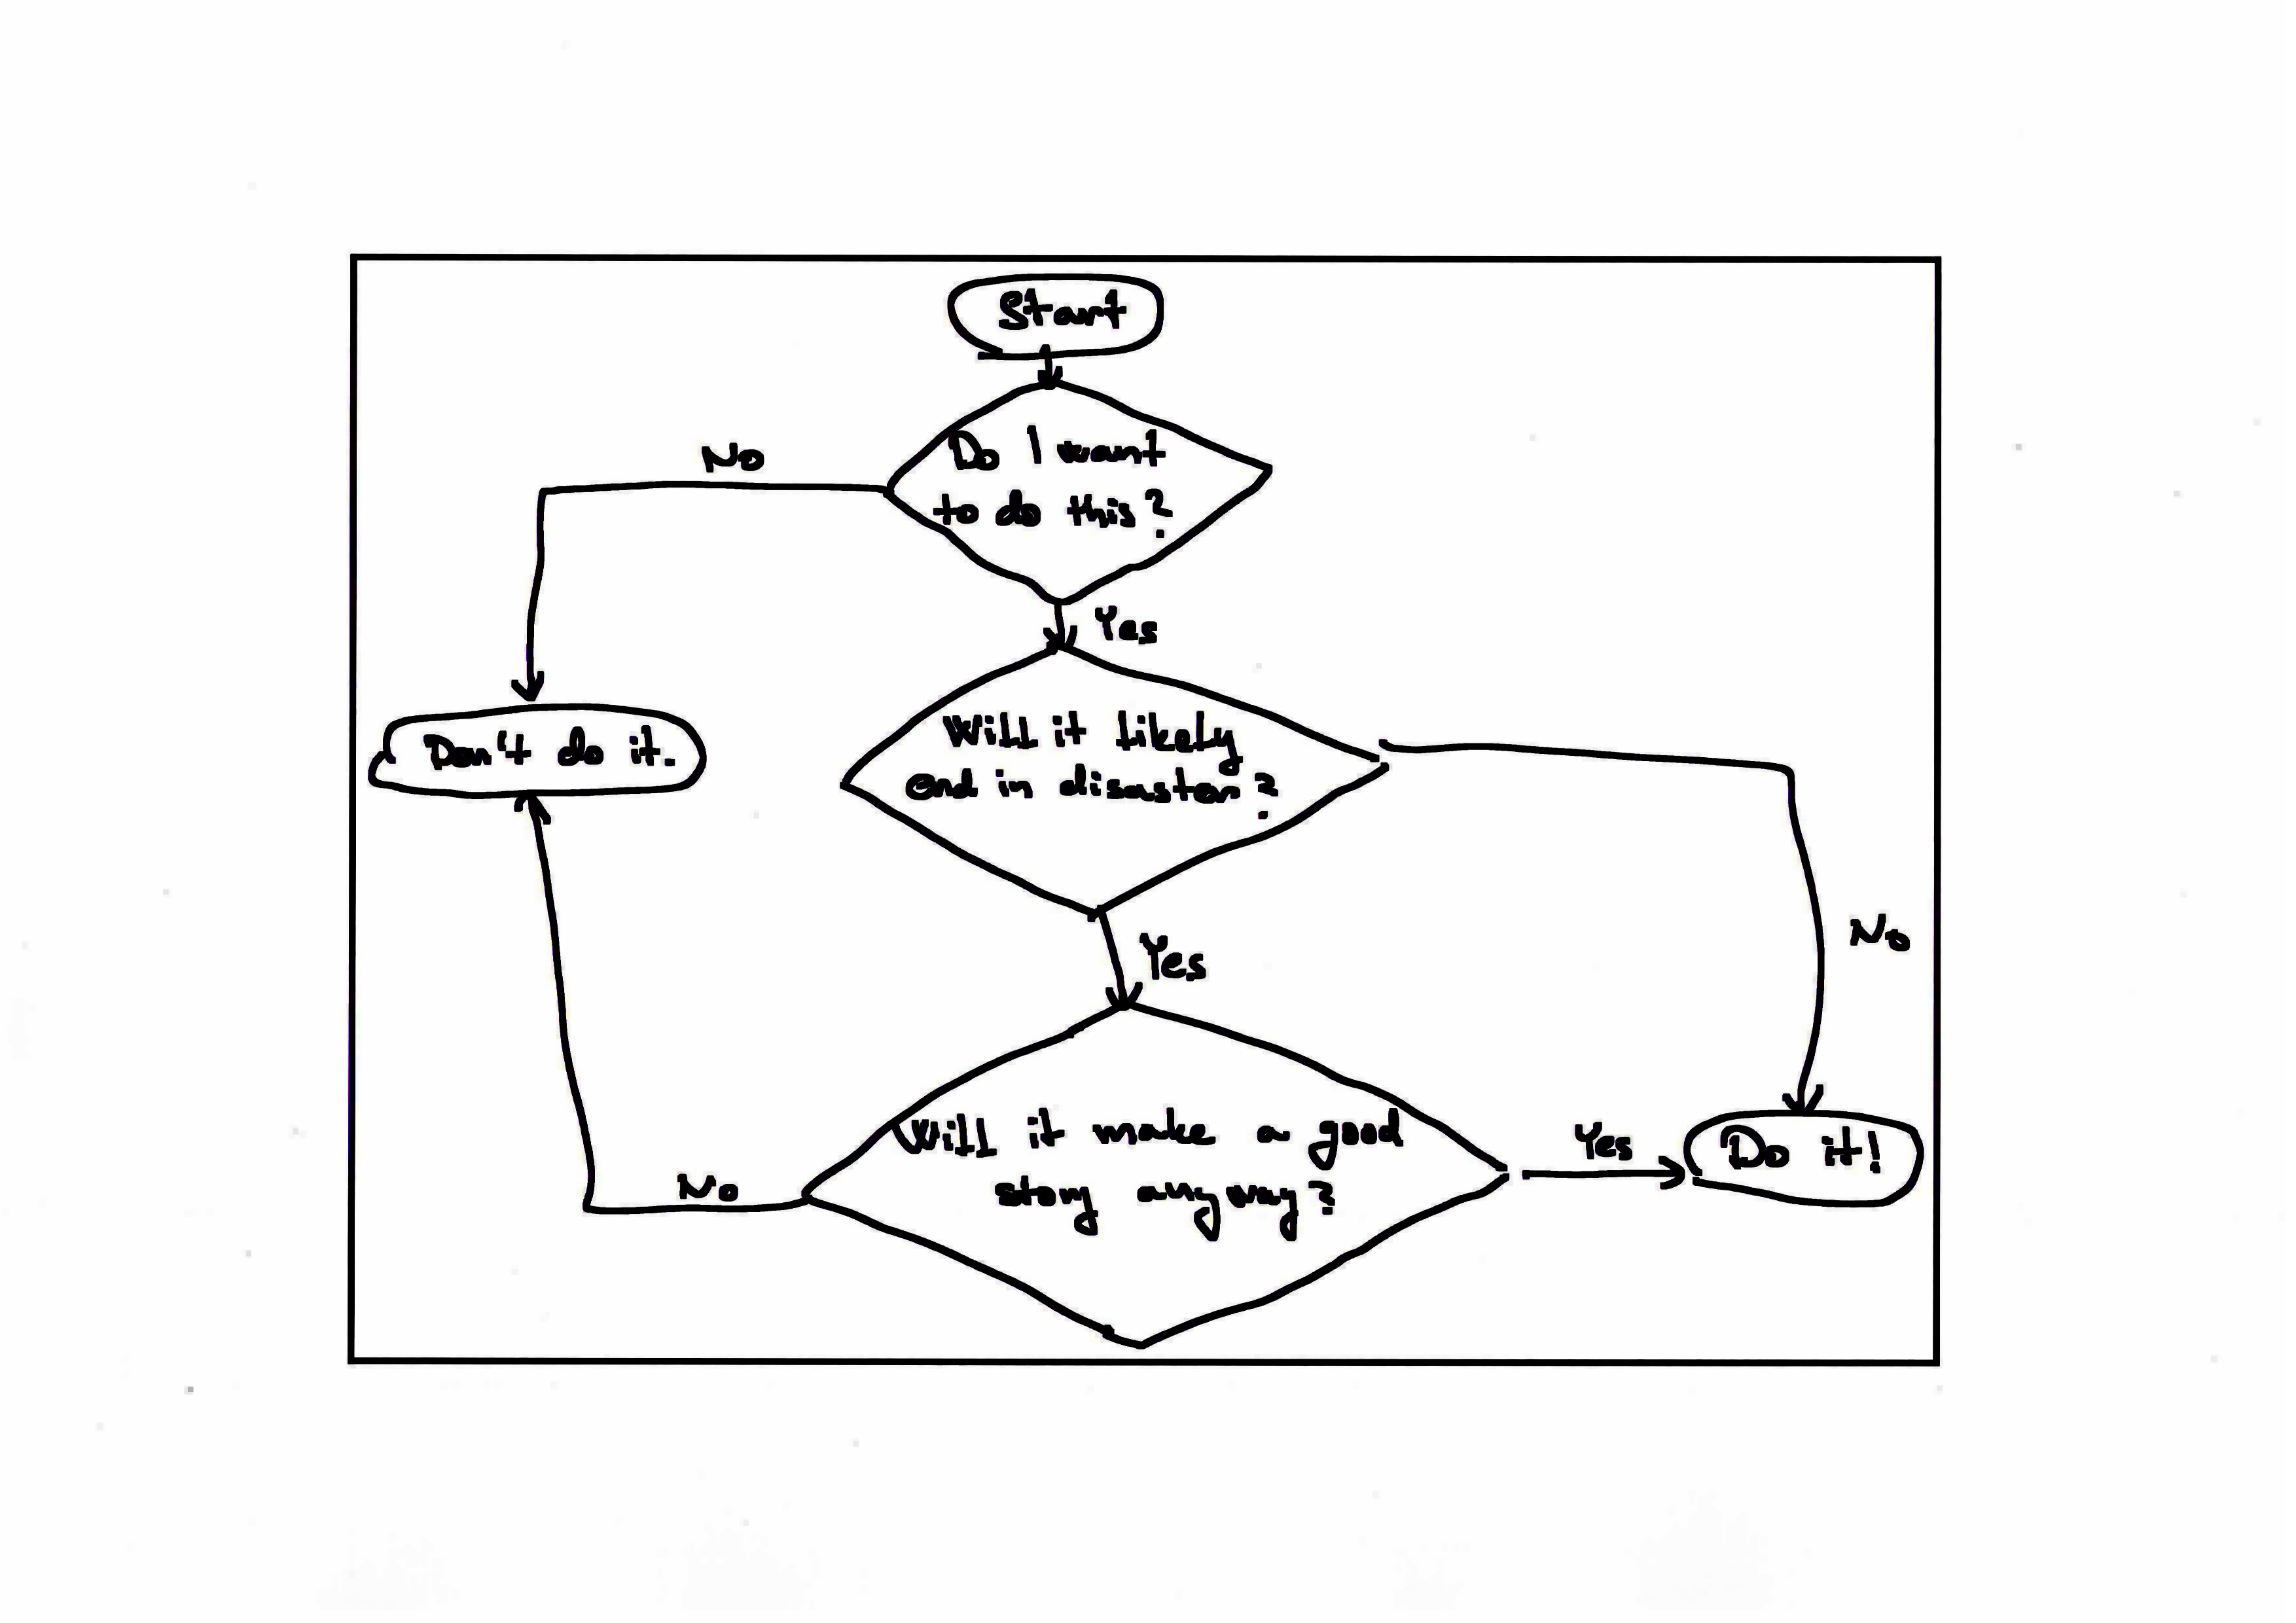 Start
No
Do I want
to do this?
Yes
Don't do it.
Will it likely
end in disaster?
No
Yes
Will it make a good
story anyway?
No
Yes
Do it!